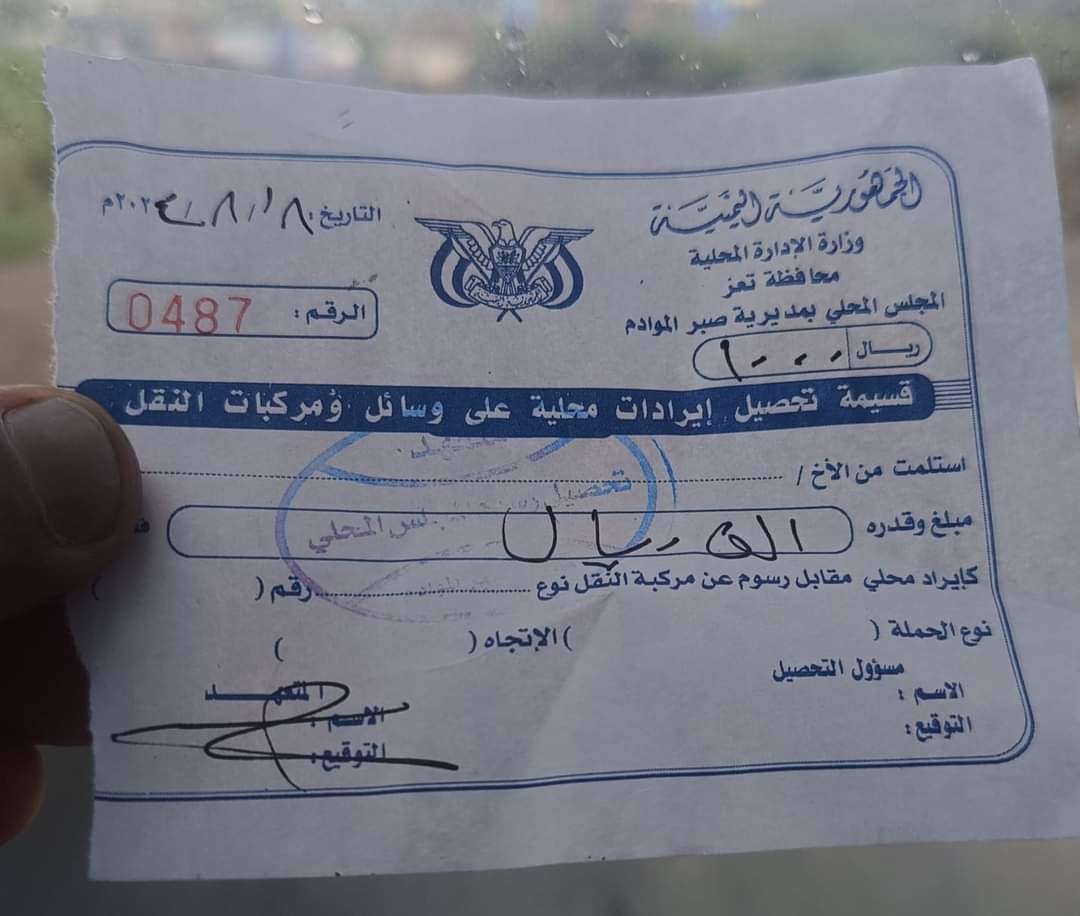 الجمهورية اليمنية
وزارة الإدارة المحلية
محافظة تعز
المجلس المحلي بمديرية صبر الموادم
ريال ١٠٠٠
التاريخ: ١٨ / ٨ / ٢٠٢٤م
الرقم: 0487
قسيمة تحصيل إيرادات محلية على وسائل ومركبات النقل
استلمت من الأخ /
مبلغ وقدره الف ريال
كإيراد محلي مقابل رسوم عن مركبة النقل نوع رقم ( )
نوع الحملة ( ) الإتجاه ( )
مسؤول التحصيل
الاسم :
التوقيع :
المتعهد
الاسم :
التوقيع :
تحصيل
المجلس المحلي